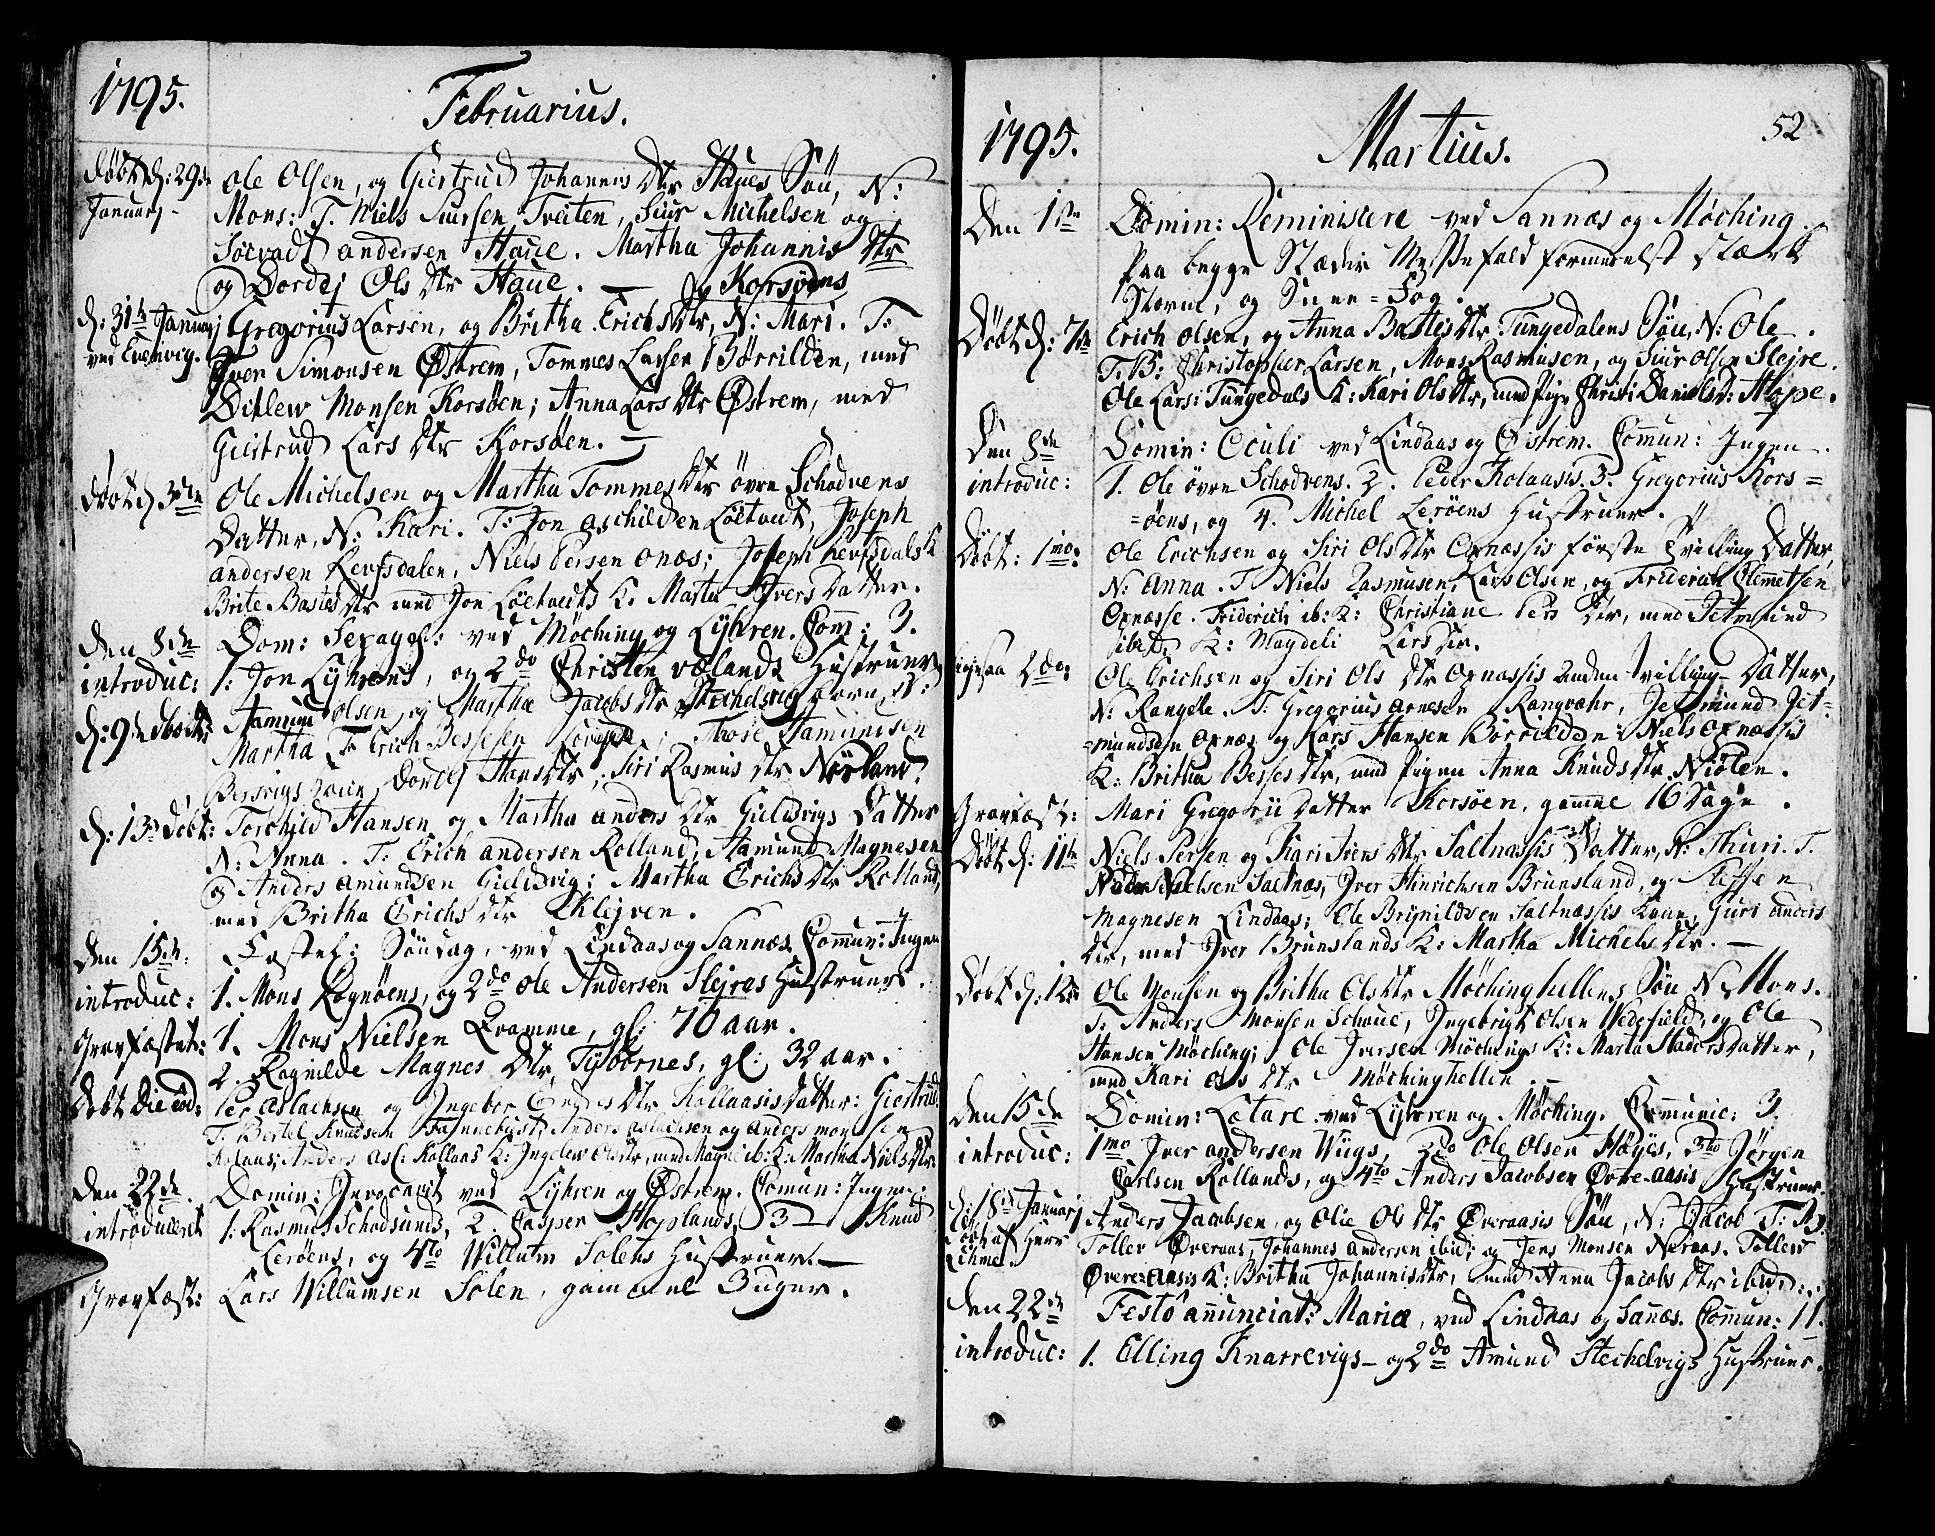 1795.
Februarius.
Døbt d: 29de Januarj -
Ole Olsen, og Giertrud Johannes Dtr Haues Søn, N:
Mons: T. Niels Siursen Tveiten, Siur Michelsen og
andersen Haue. Martha Johannis Dtr
og Dordej Ols Dtr Haue. — Korsøens
d: 31te Januarj
ved Evenvig.
Gregorius Larsen, og Britha Erichs Dtr, N: Mari. T:
Iver Simonsen Østrem, Tommes Larsen Børrilden, med
Ditlew Monsen Korsøen; Anna Lars Dtr Østrem, med
Giertrud Lars Dtr Korsøen. —
Døbt d 3die
Ole Michelsen og Martha Tommes Dtr øvre Schodvens
Datter, N: Kari. T: Jon Aschilden Løetvedt, Joseph
andersen Refsdalen, Niels Persen Onæs; Joseph Refsdals K
Brite Bastes Dtr med Jon Løetvedts K: Marta Ivers Datter.
Den 8de
Dom: Sexages: ved Møching og Lyhren. Com: 3.
introduc:
1. Jon Lyhrens, og 2do Christen vælands Hustruer
d: 9de døbt:
Hamund olsen, og Martha Jacobs Dtr Stechelvig barn, N:
Martha T: Erich Bessesen ; Those Hamundsen
Dordej Hans Dtr; Siri Rasmus Dtr Nøeland.
d: 13de Døbt:
Torchild Hansen og Martha anders Dtr Gieldsvigs Datter
N: Anna. T: Erich andersen Rolland, Hamund Magnesen
og Anders Amundsen Gieldsvig; Martha Erichs Dtr Rolland,
med Britha Erichs Dtr Eklejven.
Den 15de.
Fastel: Søndag, ved Lindaas og Sannæs. Comun: Ingen
introduc:
1. Mons Rognøens, og 2do Ole Andersen Slejres Hustruer.
Gravfæstet:
1. Mons Nielsen Qvamme, gl: 70 aar.
2. Ragnilde Magnes Dtr, Tybørnes, gl: 32 aar.
Døbt Die eod:
Per Aslachsen og Ingebor Dtr Kollaasis Datter: Giertrud.
T: Bertel Knudsen Fannebust, Anders Aslachsen og Anders monsen
Kolaas; Anders Asl: Kollaas K: Ingelew Ols Dtr, med Magne ib: K: Martha Niels Dtr
Den 22de.
Domin: Invocavit ved Lyhren og Østrem. Comun: Ingen.
introduceret
1. Rasmus Schodsunds, 2. Casper Hoplands, 3 — Knud
Lerøens, og 4to Willum Solens Hustruer. —
Gravfæst:
Lars Willumsen Solen, gammel 3 uger.
52
1795.
Martius.
Den 1ste
Domin: Reminiscere ved Sannæs og Møching.
Paa begge Stæder Messefald formedelst stærk
Storm, og Snee-Fog.
Døbt d: 7de
Erich Olsen, og Anna Bastes Dtr Tungedalens Søn, N: Ole.
T: B: Christopher Larsen, Mons Rasmusen, og Siur Olsen Slejre.
Ole Lars: Tungedals K: Kari Ols Dtr, med Pige Christi Daniels D: Hope.
Den 8de
Domin: Oculi ved Lindaas og Østrem. Comun: Ingen.
introduc:
1. Ole øvre Schodvens. 2. Peder Kolaasis. 3. Gregorius Kors=
=øens, og 4. Michel Lerøens Hustruer.
Døbt: 1mo:
Ole Erichsen og Siri Ols Dtr Opnæssis første Tvilling Datter,
N: Anna. T. Niels Rasmusen, Lars Olsen, og Friderich Clemetsen
Opnæsse. Friderich ib: K: Christiane Pers Dtr, med Jetmund
ibid: K: Magdeli Lars Dtr.
2do:
Ole Erichsen og Siri Ols Dtr Opnæssis anden tvilling Datter,
N: Rangele. T: Gregorius Arnesen Rangvahr, Jetmund Jet=
=mundsen Opnæs og Lars Hansen Børrilden: Niels Opnæssis
K: Britha Besses Dtr, med Pigen Anna Knuds Dtr Niølen.
Gravfæst:
Mari Gregorii Datter Korsøen, gamme 16 Dage.
Døbt d: 11te
Niels Persen og Kari Ivers Dtr Saltnæssis Datter, N: Thuri. T.
Nielsen Saltnæs, Iver Hinrichsen Brunsland, og Steffen
Magnesen Lindaas; Ole Brynildsen Saltnæssis kone, Guri Anders
Dtr, med Iver Brunslands K: Martha Michels Dtr. —
Døbt d: 12te
Ole Monsen og Britha Ols Dtr Møchinghellens Søn N: Mons.
T: Anders Monsen Schoue, Ingebrigt Olsen Wedefield, og Ole
Hansen Møching; Ole Iversen Møchings K: Marta Hadors Datter,
med Kari Ols Dtr Møchinghellen
Den 15de
Domin: Lætare ved Lyhren og Møching. Communic: 3.
introduc:
1mo Iver andersen Wiigs, 2do Ole Olsen Høyes, 3tio Jørgen
Carlsen Rollands, og 4to Anders Jacobsen Øvre-aasis Hustruer.
d: 18de Januarj
Døbt af Herr
Rihme.
Anders Jacobsen, og Olie Ols Dtr Øveraasis Søn, N: Jacob T:
Tollev Øveraas, Johannes Andersen ibid; og Jens Monsen Neraas. Tollew
Øvere-aasis K: Britha Johannis Dtr, med Anna Jacobs Dtr ibid:.
Den 22de
Festo annunciat: Mariæ, ved Lindaas og Sanæs. Comun: 11.
introduc:
1. Elling Knarrevigs - og 2do Amund Stechelvigs Hustruer.